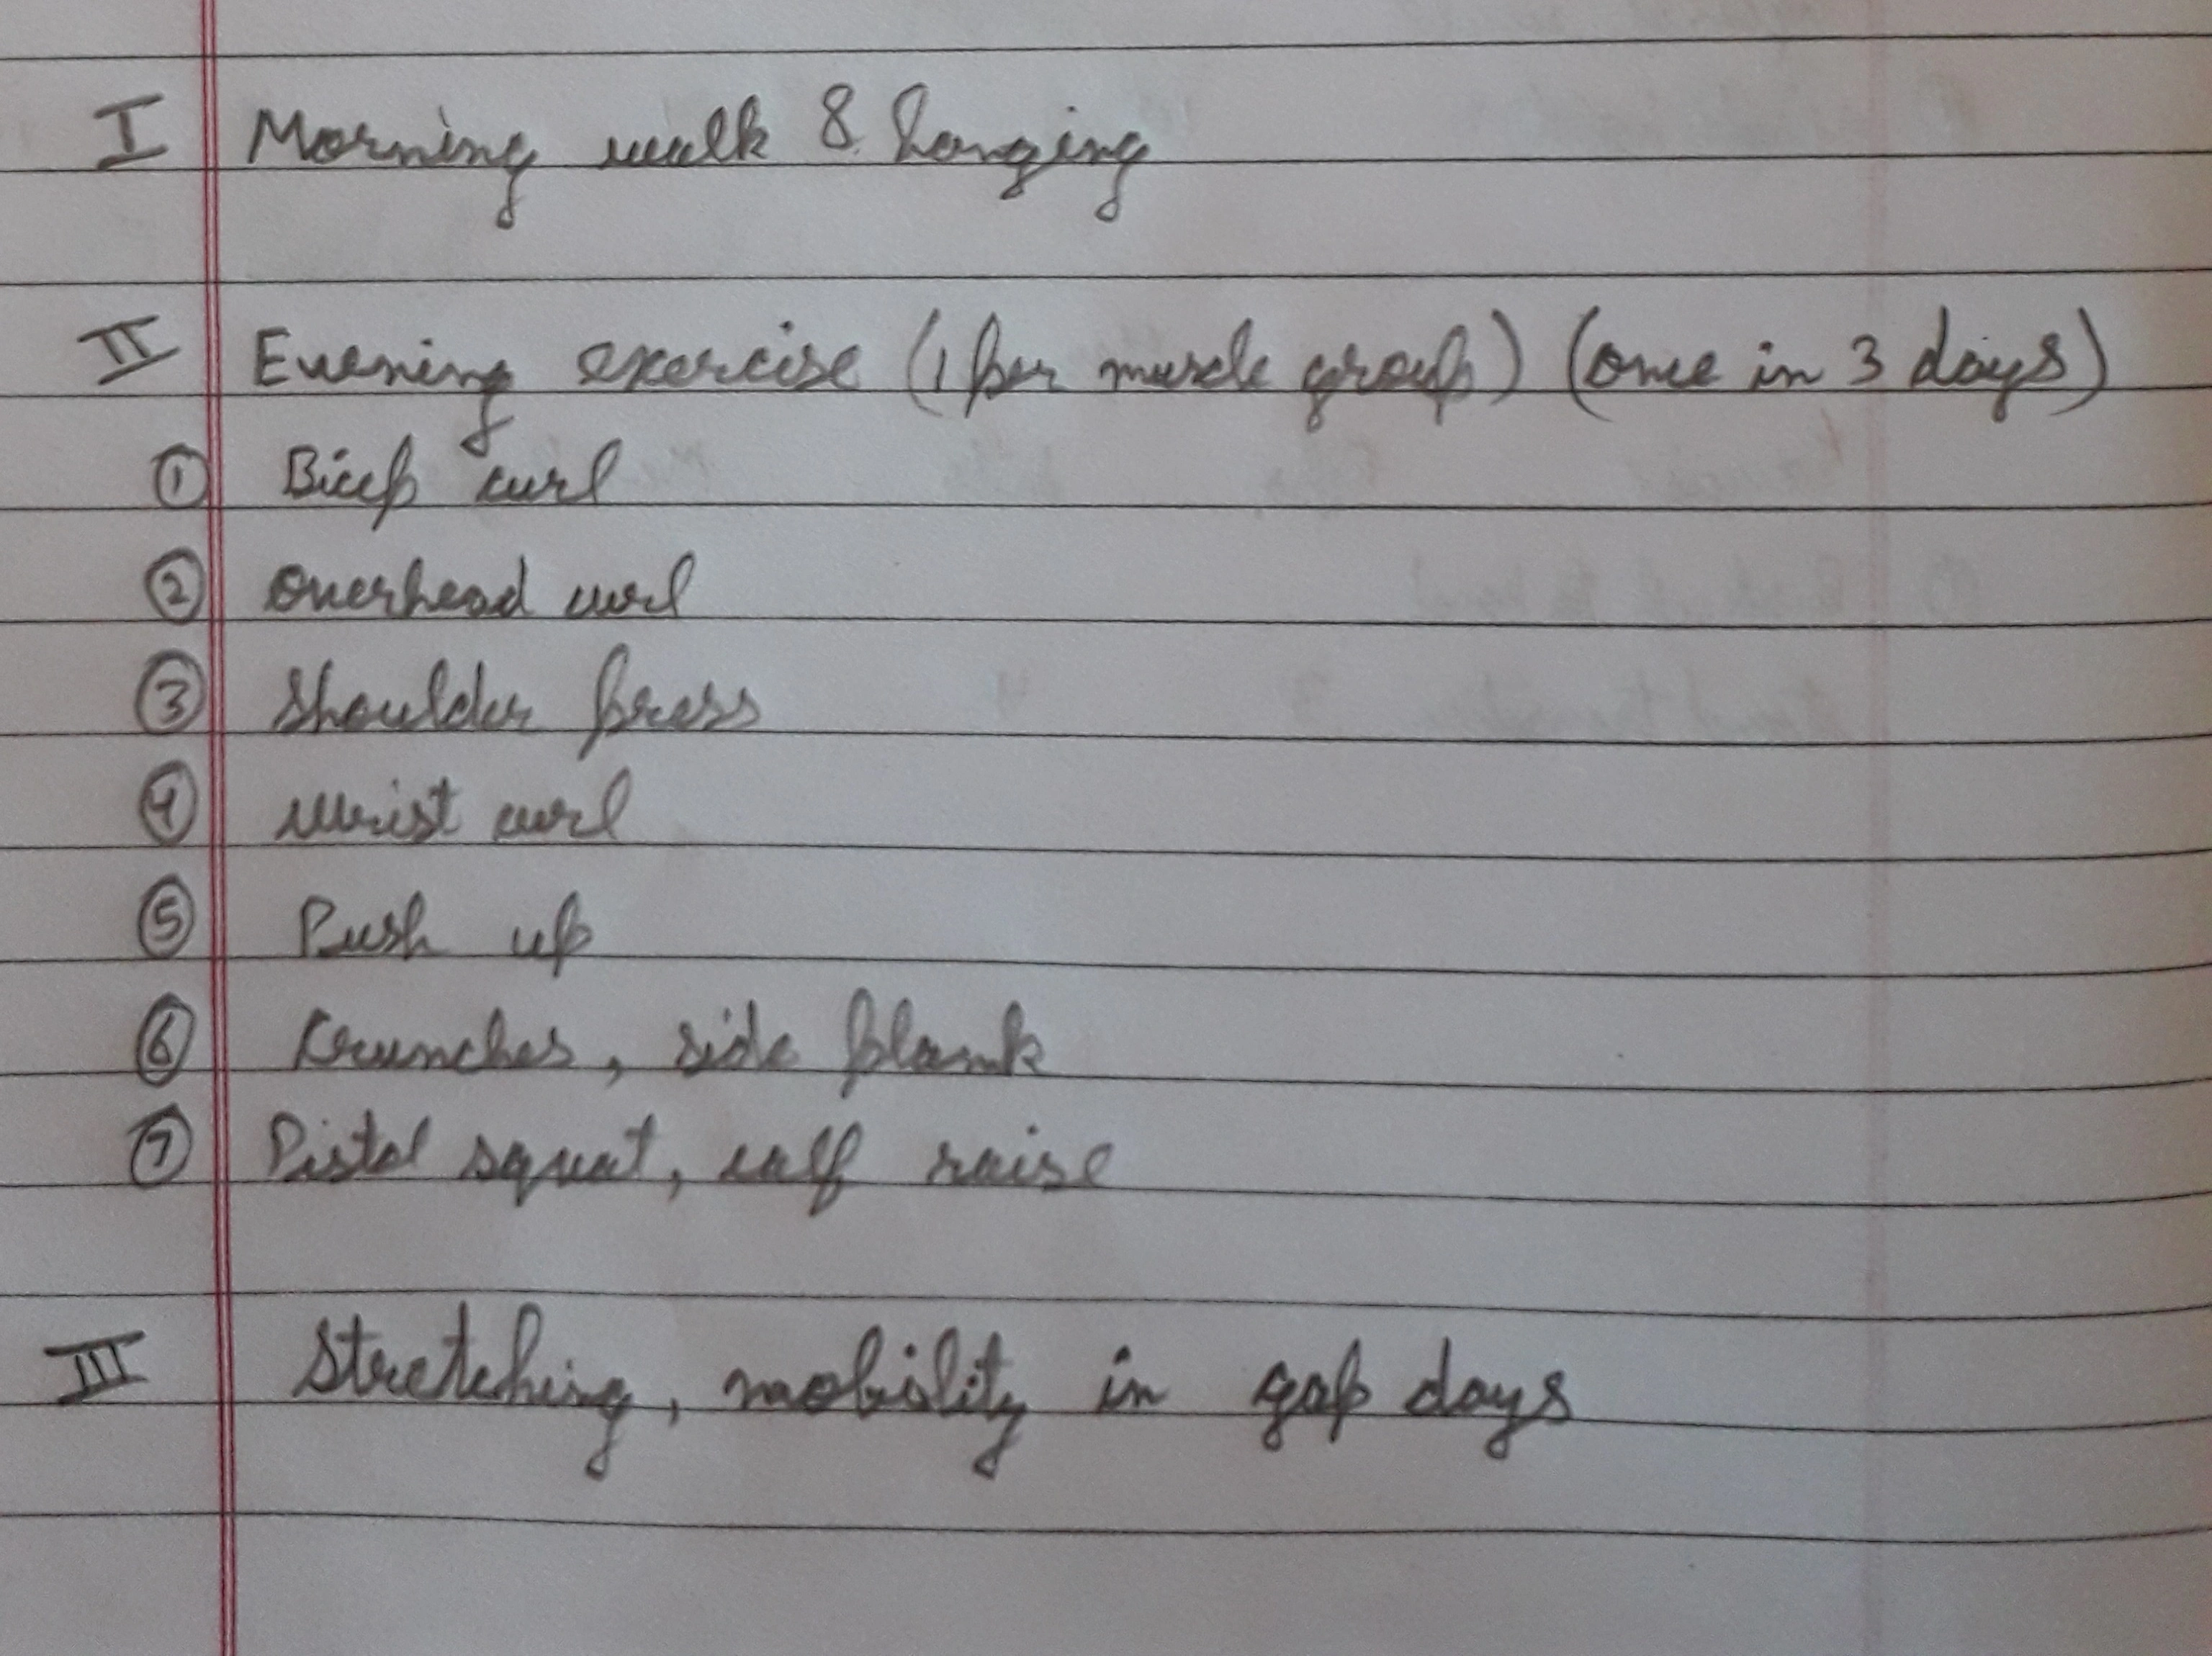 I Morning walk & hanging
II Evening exercise (1 per muscle group) (once in 3 days)
① Bicep curl
② Overhead curl
③ Shoulder press
④ Wrist curl
⑤ Push up
⑥ Krunches, side plank
⑦ Pistol squat, calf raise
III Stretching, mobility in gap days